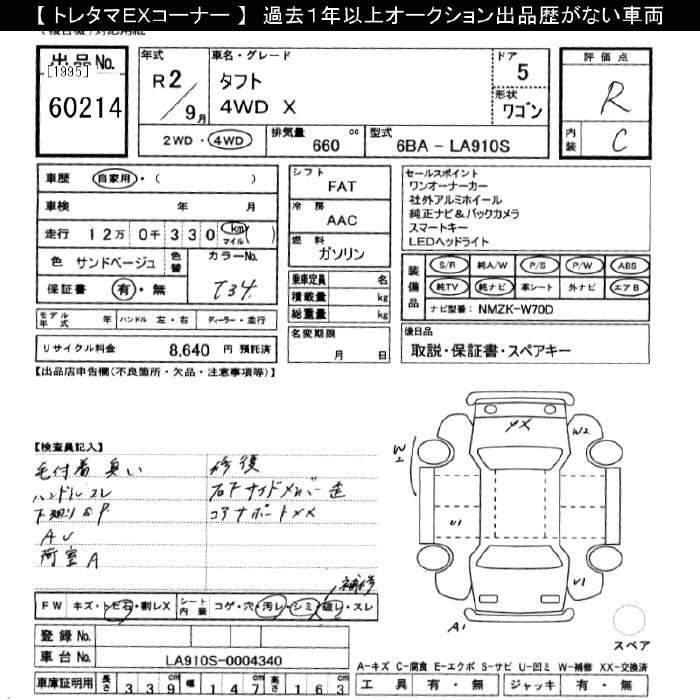 【トレタマEXコーナー】 過去1年以上オークション出品歴がない車両
出品No.
[1995]
60214
年式
R2/9月
車名・グレード
タフト
4WD X
ドア
5
形状
ワゴン
2WD・4WD
排気量 660 cc
型式 6BA - LA910S
評価点
R
内装 C
車歴 自家用・( )
車検 年 月
走行 12万0千330 km マイル ( )
色 サンドベージュ 色替 カラーNo. T34
保証書 有・無
モデル年式 ハンドル 左・右 ディーラー・並行
リサイクル料金 8,640 円 預託済
シフト
FAT
冷房
AAC
燃料
ガソリン
乗車定員 名
積載量 kg
総重量 kg
名変期限
月 日
セールスポイント
ワンオーナーカー
社外アルミホイール
純正ナビ&バックカメラ
スマートキー
LEDヘッドライト
装備品
S/R 純A/W P/S P/W ABS
純TV 純ナビ 革シート 外ナビ エアB
ナビ型番: NMZK-W70D
後日品
取説・保証書・スペアキー
【出品店申告欄(不良箇所・欠品・注意事項等)】
【検査員記入】
毛付着 臭い
ハンドルスレ
下廻りSP
AU
荷室A
修復
右Fサイドメンバー歪
コアサポートXX
XX
W2
W2
U1
U1
A1
FW キズ・トビ石・割レX
シート内装 コゲ・穴・汚レ・シミ・破レ・スレ
補修
登録No.
車台No. LA910S-0004340
車庫証明用 長さ 339 cm 幅 147 cm 高さ 163 cm
スペア
A-キズ C-腐食 E-エクボ S-サビ U-凹ミ W-補修 XX-交換済
工具 有・無 ジャッキ 有・無